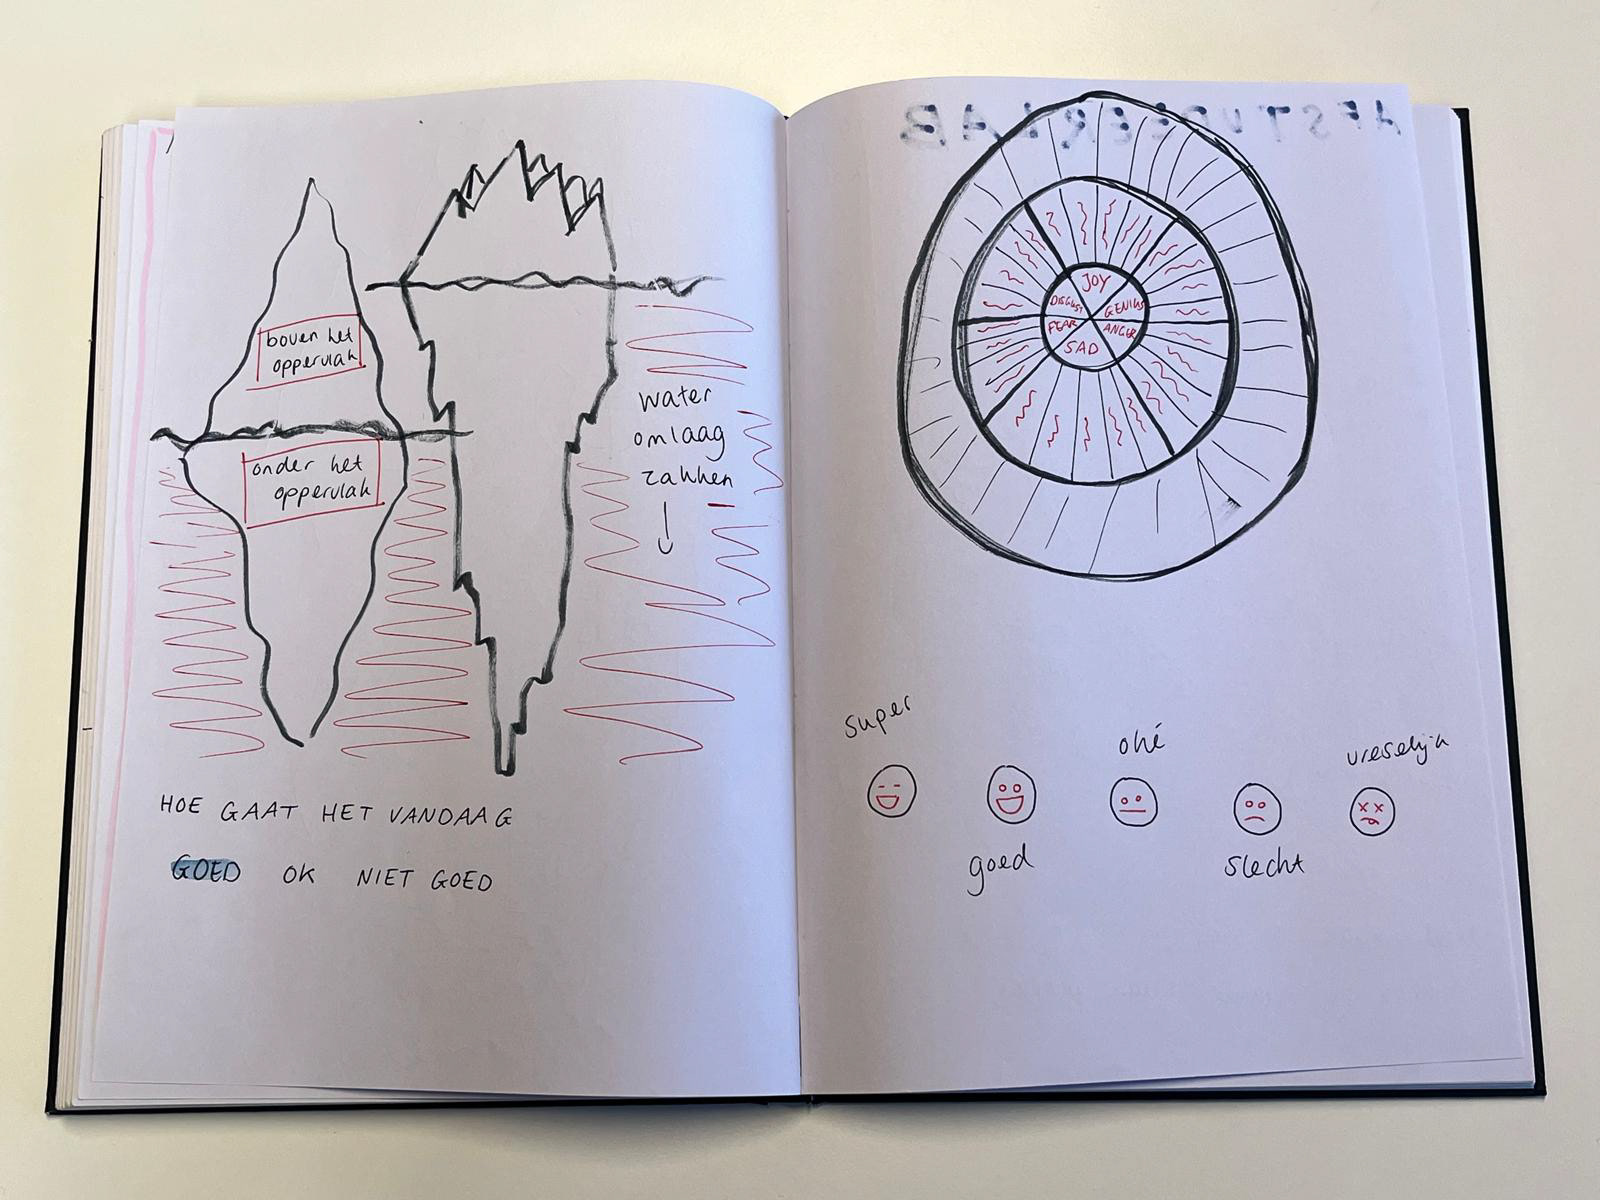 boven het
oppervlak
onder het
oppervlak
water
omlaag
zakken
HOE GAAT HET VANDAAG
GOED OK NIET GOED
AFSTUDEERLAB
JOY
DISGUST GENIUS
FEAR ANGER
SAD
super
oké
vreselijk
goed
slecht